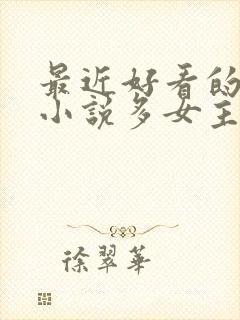 最近好看的
小說多女主
徐翠華